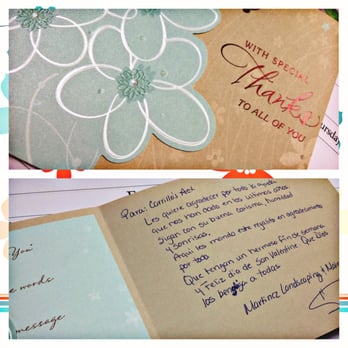 WITH SPECIAL
Thanks
TO ALL OF YOU
You"
e words
message
Para: Carrillo's Act
Les quiero agradecer por toda la ayuda
que nos han dado en los ultimos años.
Sigan con su buena carisma, humildad
y sonrisas.
Aqui les mando este regalito en agradecimiento
por todo
Que tengan un hermoso fin de semana
y Feliz día de san Valentine Que Dios
los bendiga a todas
Martinez Landscaping